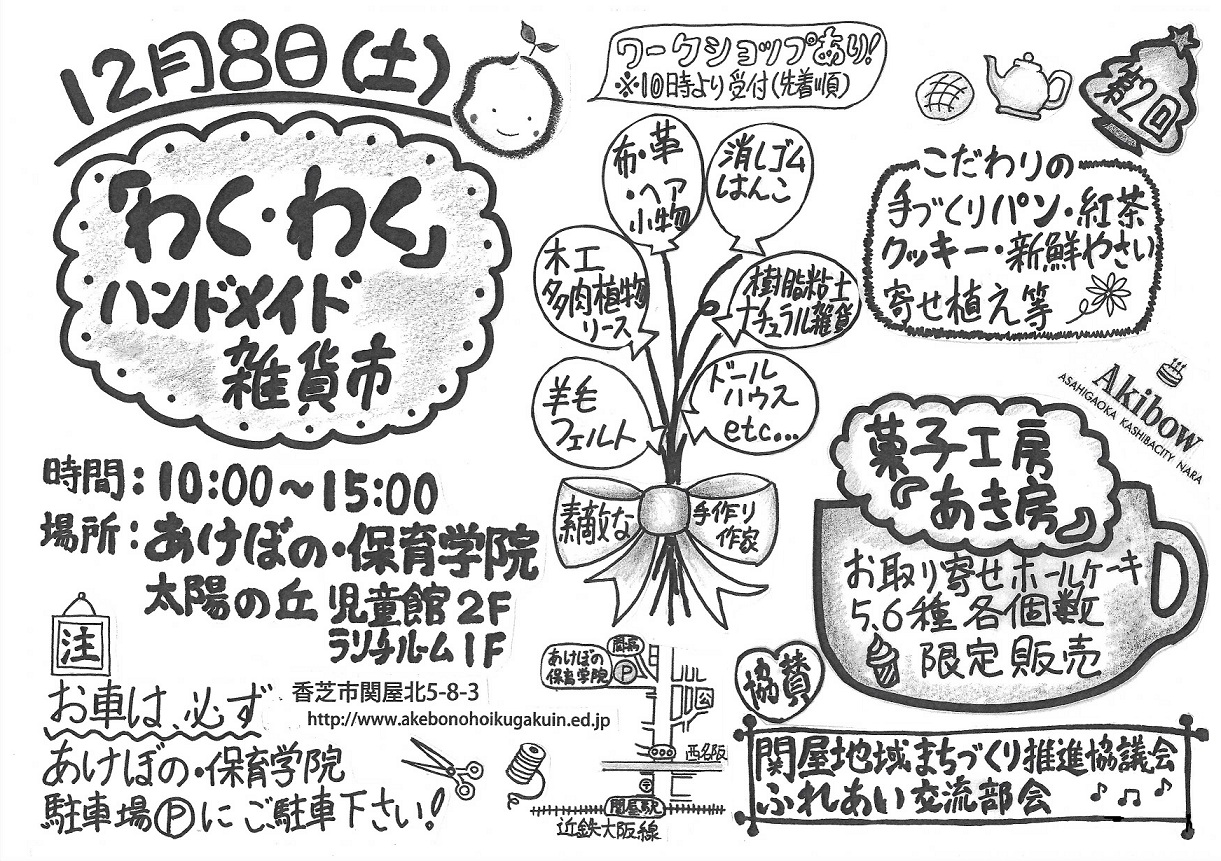 12月8日(土)
「わく・わく」
ハンドメイド
雑貨市
時間：10:00～15:00
場所：あけぼの・保育学院
太陽の丘 児童館2F
ランチルーム1F
注
お車は、必ず
あけぼの・保育学院
駐車場Ⓟにご駐車下さい!
香芝市関屋北5-8-3
http://www.akebonohoikugakuin.ed.jp
ワークショップあり!
※10時より受付(先着順)
布・革
・ヘア
小物
消しゴム
はんこ
木工
多肉植物
リース
樹脂粘土
ナチュラル雑貨
羊毛
フェルト
ドール
ハウス
etc...
素敵な
手作り
作家
あけぼの
保育学院
P
公
西名阪
関屋駅
近鉄大阪線
第2回
こだわりの
手づくりパン・紅茶
クッキー・新鮮やさい
寄せ植え等
Akibow
ASAHIGAOKA KASHIBACITY NARA
菓子工房
『あき房』
お取り寄せホールケーキ
5、6種各個数
限定販売
協賛
関屋地域まちづくり推進協議会
ふれあい交流部会